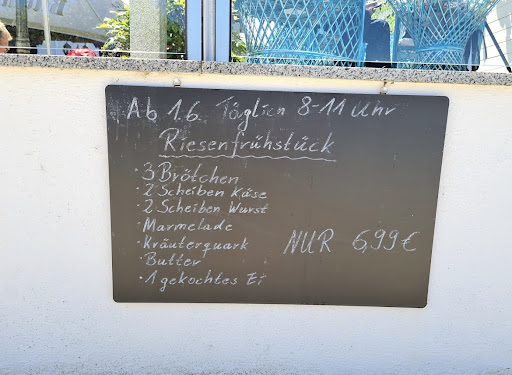 Ab 1.6. Täglich 8-11 Uhr
Riesenfrühstück
· 3 Brötchen
· 2 Scheiben Käse
· 2 Scheiben Wurst
· Marmelade
· Kräuterquark
NUR 6,99€
· Butter
· 1 gekochtes Ei